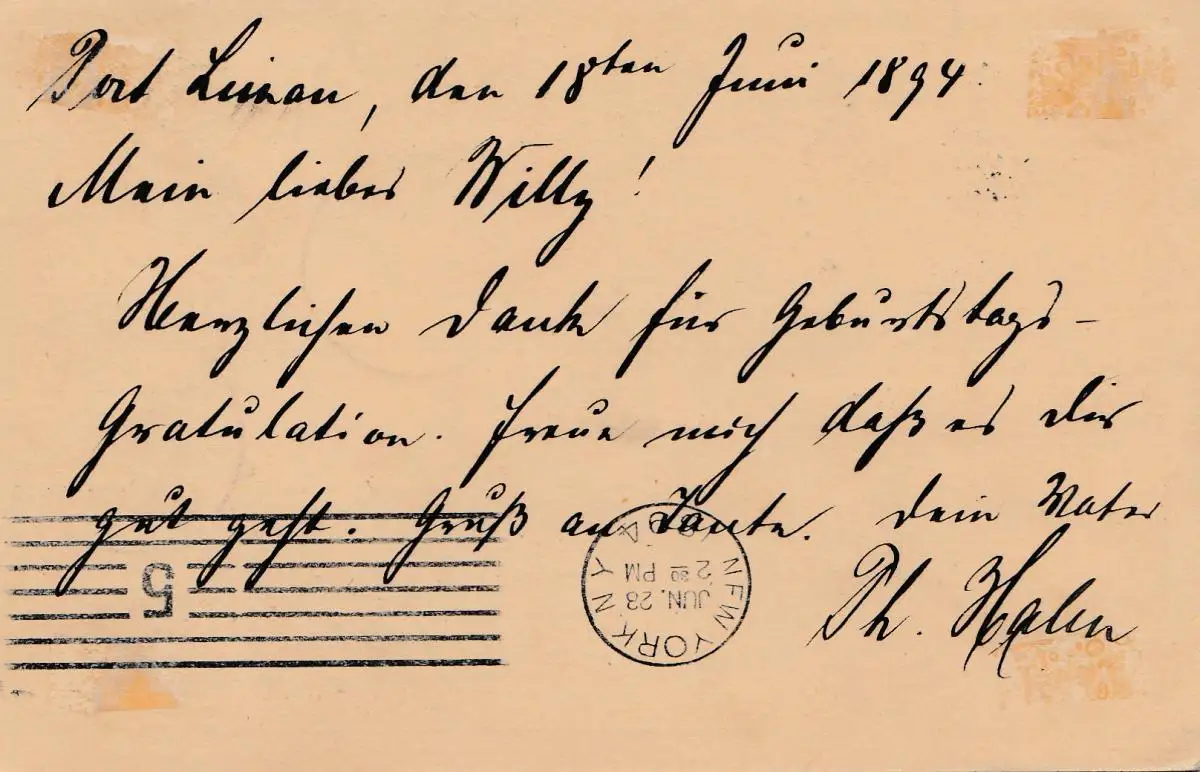 Port Limon, den 18ten Juni 1894.
Mein lieber Willy!
Herzlichen Dank für Geburtstags-
Gratulation. Freue mich daß es Dir
gut geht. Gruß an Tante. Dein Vater
Ph. Hahn
5
NEW YORK N Y
JUN. 28
2 30 PM
94